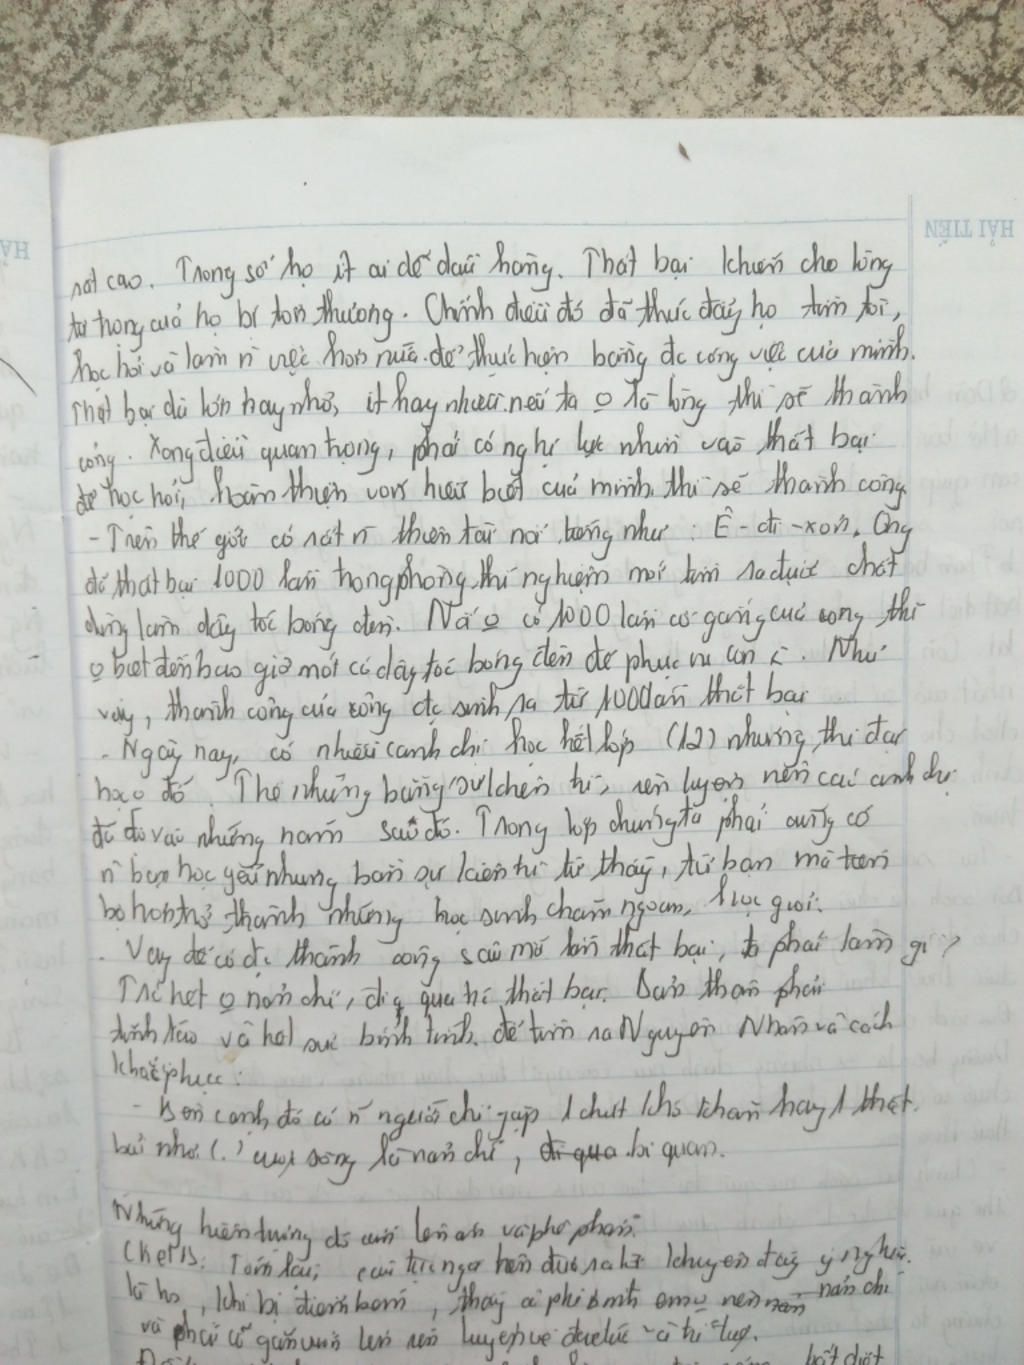 HẢI TIẾN
rất cao. Trong số họ ít ai dễ đầu hàng. Thất bại khiến cho lòng
tự trọng của họ bị tổn thương. Chính điều đó đã thúc đẩy họ tìm tòi,
học hỏi và làm n việc hơn nữa để thực hiện bằng đc công việc của mình.
Thất bại dù lớn hay nhỏ, ít hay nhiều nếu ta o lòng thì sẽ thành
công. Xong điều quan trọng, phải có nghị lực nhìn vào thất bại
để học hỏi, hoàn thiện vốn hiểu biết của mình thì sẽ thành công
- Trên thế giới có rất n thiên tài nổi tiếng như : Ê - đi - xơn. Ông
đã thất bại 1000 lần trong phòng thí nghiệm mới tìm ra được chất
dùng làm dây tóc bóng đèn. Nếu o có 1000 lần cố gắng của ông thì
o biết đến bao giờ mới có dây tóc bóng đèn để phục vụ. Như
vậy, thành công của ông đc sinh ra từ 1000 lần thất bại
- Ngày nay, có nhiều anh chị học hết lớp (12) nhưng thi đại
học o đỗ. Thế nhưng bằng sự kiên trì, rèn luyện nên các anh chị
đã đỗ vào những năm sau đó. Trong lớp chúng ta phải cũng có
n bạn học yếu nhưng bằng sự kiên trì từ thầy, từ bạn mà
bộ hơn trở thành những học sinh chăm ngoan, học giỏi.
- Vậy để có đc thành công sau mỗi lần thất bại, phải làm gì?
Trc hết o nản chí, đi qua thất bại. Bản thân phải
tỉnh táo và hết sức bình tĩnh để tìm ra Nguyên Nhân và cách
khắc phục:
- Bên cạnh đó có n người chỉ gặp 1 chút khó khăn hay 1 thất
bại nhỏ (.) cuộc sống là nản chí, đi qua bi quan.
Những hiện tượng đó cần lên án và phê phán.
(KetB): Tóm lại, câu tục ngữ trên đưa ra lời khuyên đầy ý nghĩa.
là hs, khi bị điểm kém, thầy cô phê bình em o nên nản nản chí
và phải cố gắng vươn lên rèn luyện về đạo đức và trí tuệ.